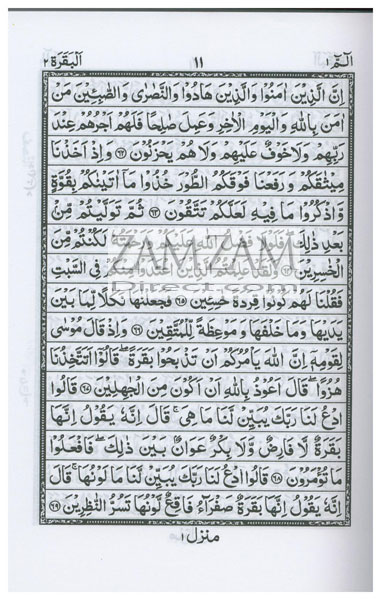 الٓمّٓ ١ ١١ البقرة ٢
اِنَّ الَّذِيْنَ اٰمَنُوْا وَالَّذِيْنَ هَادُوْا وَالنَّصٰرٰى وَالصّٰبِـِٕيْنَ مَنْ
اٰمَنَ بِاللّٰهِ وَالْيَوْمِ الْاٰخِرِ وَعَمِلَ صَالِحًا فَلَهُمْ اَجْرُهُمْ عِنْدَ
رَبِّهِمْ وَلَا خَوْفٌ عَلَيْهِمْ وَلَا هُمْ يَحْزَنُوْنَ ﴿٦٢﴾ وَاِذْ اَخَذْنَا
مِيْثَاقَكُمْ وَرَفَعْنَا فَوْقَكُمُ الطُّوْرَ خُذُوْا مَاۤ اٰتَيْنٰكُمْ بِقُوَّةٍ
وَّاذْكُرُوْا مَا فِيْهِ لَعَلَّكُمْ تَتَّقُوْنَ ﴿٦٣﴾ ثُمَّ تَوَلَّيْتُمْ مِّنْ
بَعْدِ ذٰلِكَ فَلَوْلَا فَضْلُ اللّٰهِ عَلَيْكُمْ وَرَحْمَتُهٗ لَكُنْتُمْ مِّنَ
ZAMZAM
الْخٰسِرِيْنَ ﴿٦٤﴾ وَلَقَدْ عَلِمْتُمُ الَّذِيْنَ اعْتَدَوْا مِنْكُمْ فِى السَّبْتِ
Direct.com
فَقُلْنَا لَهُمْ كُوْنُوْا قِرَدَةً خٰسِـِٕيْنَ ﴿٦٥﴾ فَجَعَلْنٰهَا نَكَالًا لِّمَا بَيْنَ
يَدَيْهَا وَمَا خَلْفَهَا وَمَوْعِظَةً لِّلْمُتَّقِيْنَ ﴿٦٦﴾ وَاِذْ قَالَ مُوْسٰى
لِقَوْمِهٖۤ اِنَّ اللّٰهَ يَاْمُرُكُمْ اَنْ تَذْبَحُوْا بَقَرَةً قَالُوْۤا اَتَتَّخِذُنَا
هُزُوًا قَالَ اَعُوْذُ بِاللّٰهِ اَنْ اَكُوْنَ مِنَ الْجٰهِلِيْنَ ﴿٦٧﴾ قَالُوا
ادْعُ لَنَا رَبَّكَ يُبَيِّنْ لَّنَا مَا هِىَ قَالَ اِنَّهٗ يَقُوْلُ اِنَّهَا
بَقَرَةٌ لَّا فَارِضٌ وَّلَا بِكْرٌ عَوَانٌۢ بَيْنَ ذٰلِكَ فَافْعَلُوْا
مَا تُؤْمَرُوْنَ ﴿٦٨﴾ قَالُوا ادْعُ لَنَا رَبَّكَ يُبَيِّنْ لَّنَا مَا لَوْنُهَا قَالَ
اِنَّهٗ يَقُوْلُ اِنَّهَا بَقَرَةٌ صَفْرَآءُ فَاقِعٌ لَّوْنُهَا تَسُرُّ النّٰظِرِيْنَ ﴿٦٩﴾
منزل ١